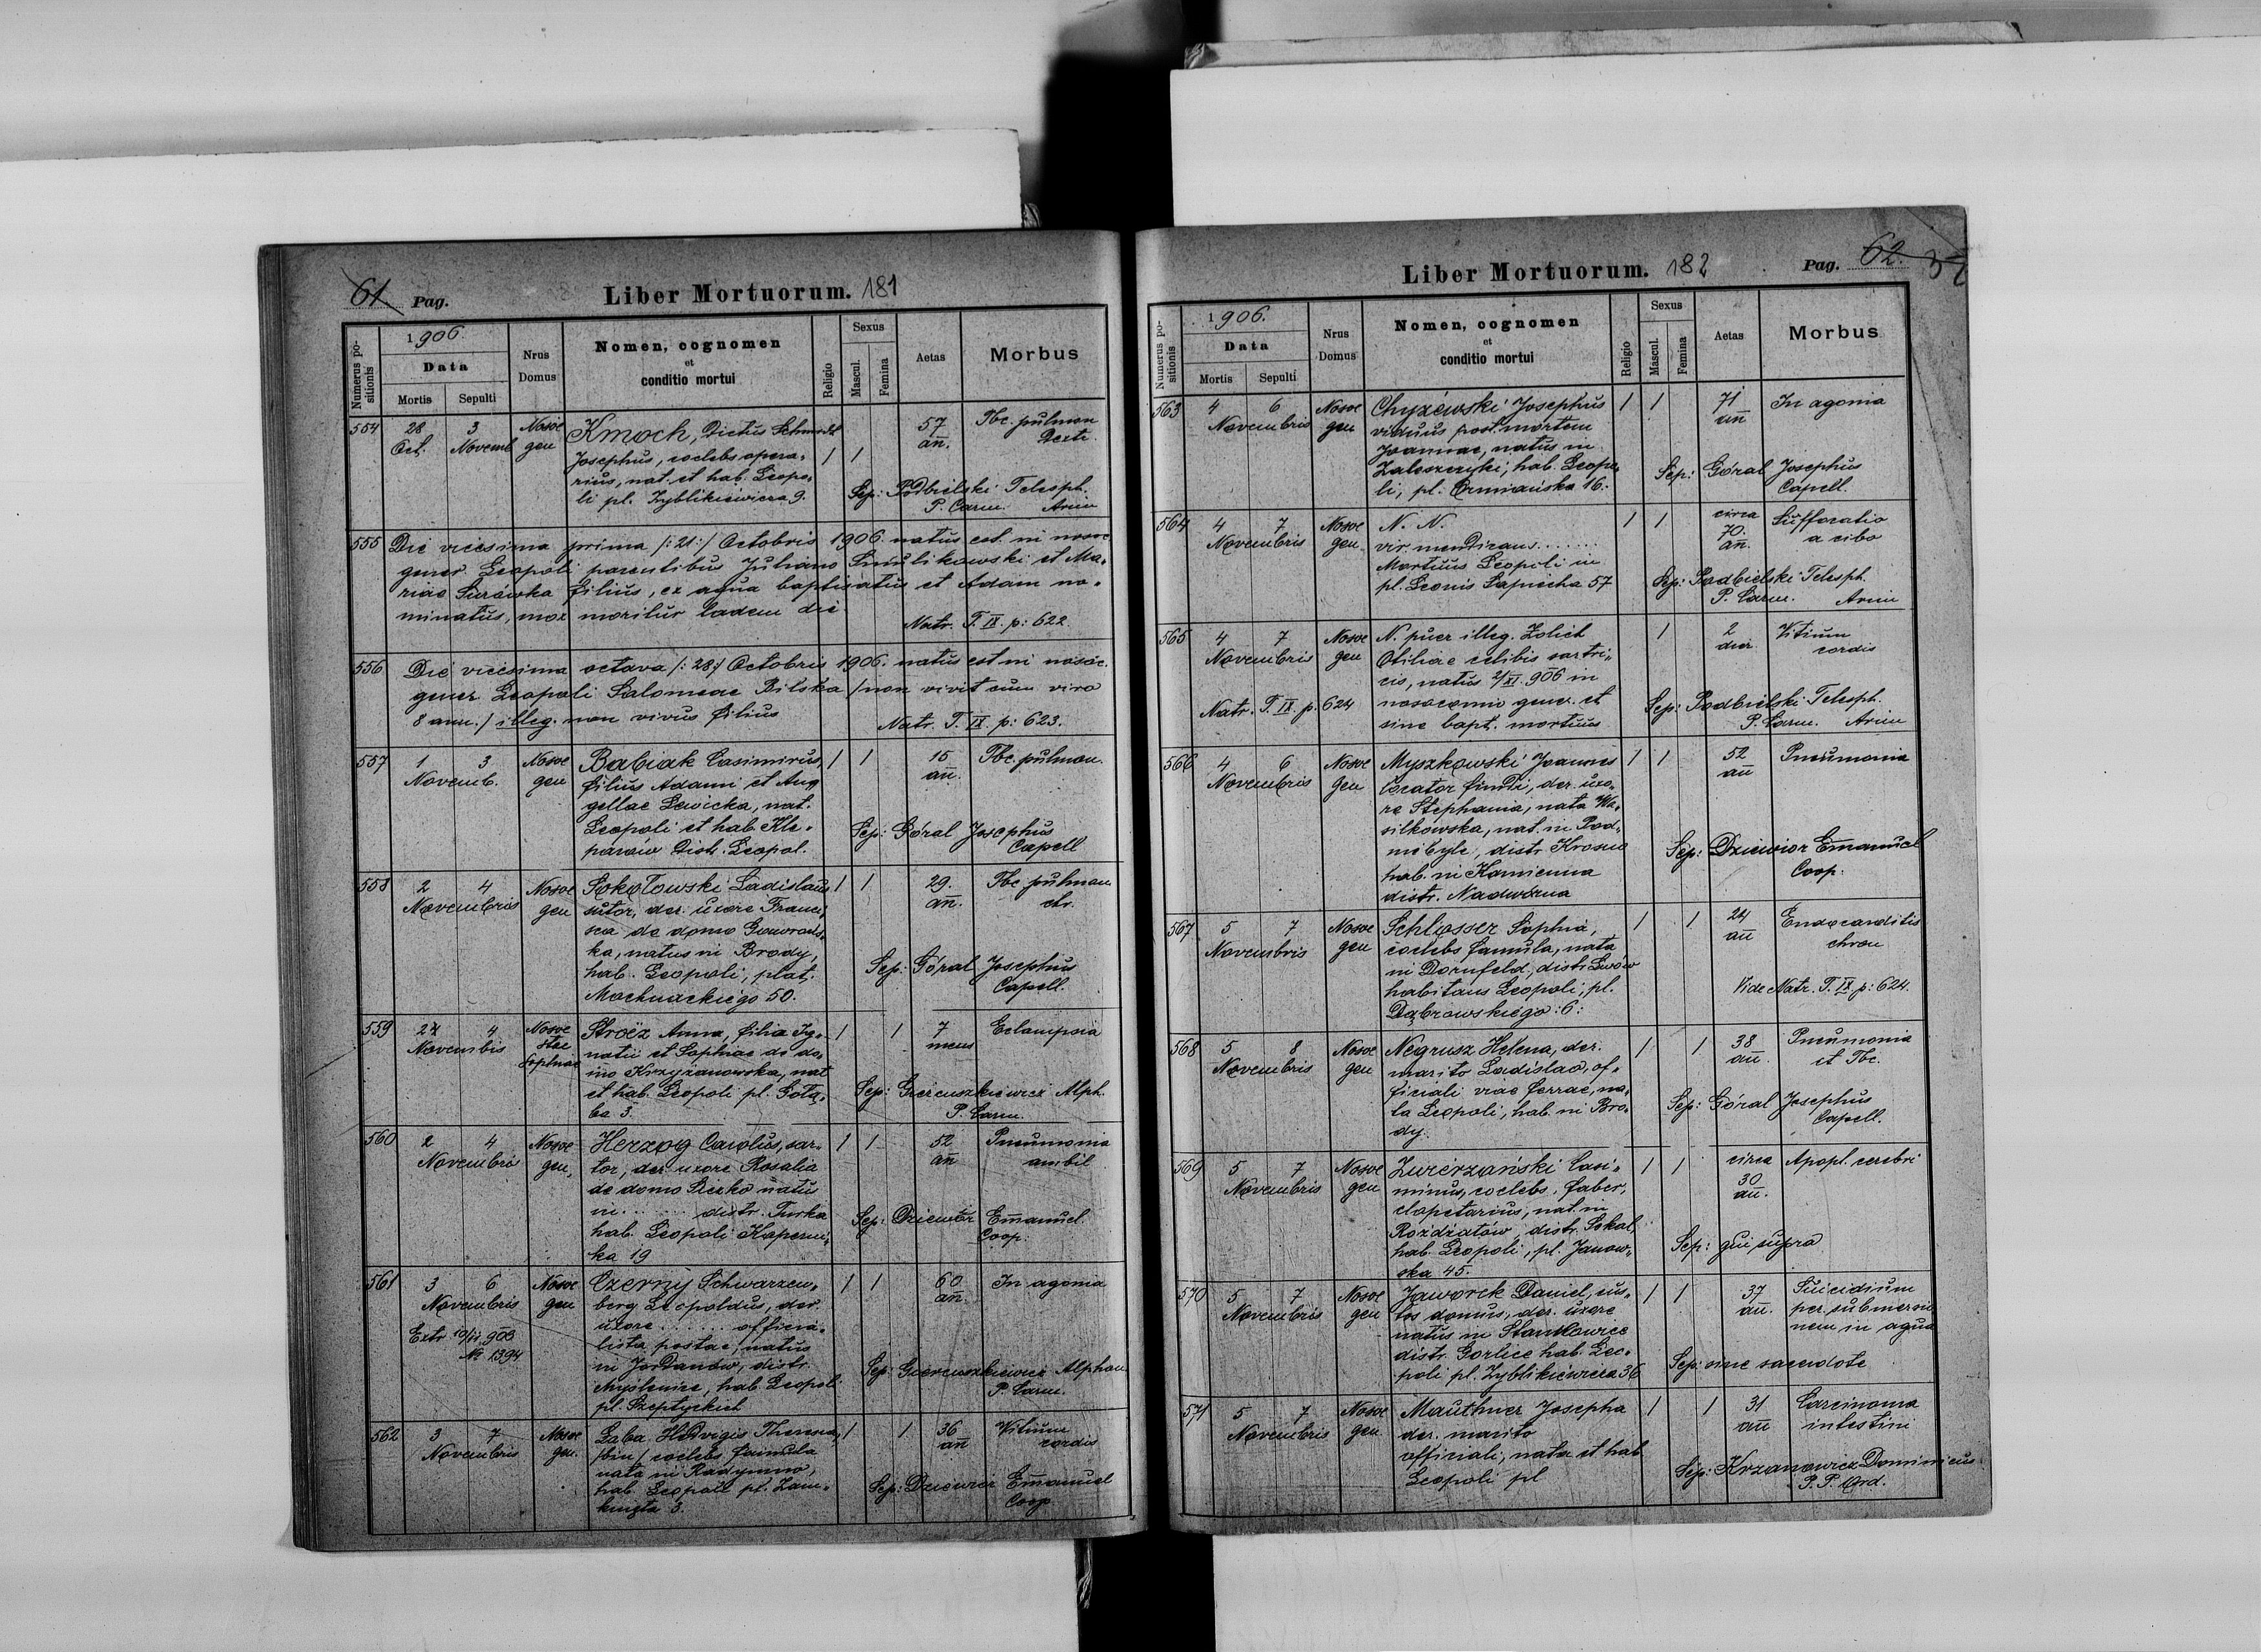 61 Pag.
Liber Mortuorum. 181
Numerus positionis
1906.
Data
Mortis
Sepulti
Nrus Domus
Nomen, cognomen
et
conditio mortui
Religio
Sexus
Mascul.
Femina
Aetas
Morbus
554 28 3 Nosoc Kmoch, Dictus Schmidt 57 Tbc. pulmon
Oct. Novemb gen Josephus, coelebs opera- 1 1 an̄. Dextr.
rius, nat. et hab. Leopo-
li pl. Zyblikiewicza 9. Sep: Podbielski Telesph.
P. Carm.
555 Die vicesima prima /:21:/ Octobris 1906. natus est in nosoc
gener Leopoli parentibus Juliano Smulikowski et Ma-
riae Surówka filius, ex aqua baptisatus et Adam no-
minatus, mox moritur eadem die
Natr. T. IX. p: 622.
556 Die vicesima octava /:28:/ Octobris 1906. natus est in nosoc.
gener Leopoli Salomeae Bilska /non vivit cum viro
8 ann./ illeg. non vivus filius Natr. T. IX p: 623.
557 1 3 Nosoc Babiak Casimirus, 1 1 15 Tbc. pulmon.
Novemb. gen filius Adami et An an̄.
gellae Lewicka, nat.
Leopoli et hab. Kle-
parów Distr. Leopol. Sep: Góral Josephus
Capell
558 2 4 Nosoc Sokołowski Ladislaus 1 1 29. Tbc pulmon
Novembris gen sutor, der. uxore Franci- an̄. chr.
sca de domo Gaworoń-
ka, natus in Brody,
hab. Leopoli, plat. Sep: Góral Josephus
Mochnackiego 50. Capell.
559 27 4 Nosoc Stroëz Anna, filia Ig- 1 1 7 Eclampsia
Novembis Stae natii et Sophiae de do- mens
Sophiae mo Krzyżanowska, nat
et hab. Leopoli pl. Gołą- Sep: Greieuszkiewicz Alph.
ba 3. P. Carm.
560 2 4 Nosoc Herzog Carolus, sar- 1 1 52 Pneumonia
Novembris gen, tor, der uxore Rosalia an̄ ambil
de domo Biezko natus
in ...... distr. Turka
hab. Leopoli Koperni- Sep: Dziewior Emanuel
ka 19 Coop.
561 3 6 Nosoc Czerny Schwarzen- 1 1 60 In agonia
Novembris gen berg Leopoldus, der. an̄.
Extr 10/VI 908 uxore ...... officia-
№ 1394 lista postae, natus
in Jordanów, distr.
Myślenice, hab. Leopoli Sep: Greieuszkiewicz Alphon
pl. Szeptyckich P. Carm.
562 3 7 Nosoc Laba Hedvigis Theresa, 1 1 36 Vitium
Novembris gen. /bin/ coelebs famula an̄ cordis
nata in Radymno,
hab. Leopoli pl. Zam- Sep: Dziewior Emanuel
knięta 3. Coop
Liber Mortuorum. 182
Pag. 62.
Numerus positionis
1906.
Data
Mortis
Sepulti
Nrus Domus
Nomen, cognomen
et
conditio mortui
Religio
Sexus
Mascul.
Femina
Aetas
Morbus
563 4 6 Nosoc Chyżewski Josephus 1 1 71 In agonia
Novembris gen viduus post mortem an̄
Joannae, natus in
Zaleszczyki, hab. Leopo-
li, pl. Ormiańska 16. Sep: Góral Josephus
Capell.
564 4 7 Nosoc N. N. 1 1 circa Suffocatio
Novembris gen vir mendicans ...... 70. a cibo
Mortuus Leopoli in an̄.
pl. Leonis Sapiecha 57 Sep: Podbielski Telesph.
P. Carm.
565 4 7 Nosoc N. puer illeg. Zolich 1 2 Vitium
Novembris gen Otiliae celibis sartri- dier cordis
cis, natus 2/XI. 906 in
Natr. T. IX p. 624 nosocomio gener. et Sep: Podbielski Telesph.
sine bapt. mortuus P. Carm.
566 4 6 Nosoc Myszkowski Joannes 1 1 52 Pneumonia
Novembris Gen locator fundi, der. uxo- an̄
re Stephania, nata Wa-
silkowska, nat. in Pod-
niebyle, distr. Krosno Sep: Dziewior Emanuel
hab. in Kamienna Coop.
distr. Nadwórna
567 5 7 Nosoc Schlosser Sophia, 1 1 24 Endocarditis
Novembris gen coelebs famula, nata an̄ chron
in Dornfeld, distr. Lwów
habitans Leopoli, pl. Vide Natr. T. IX p: 624.
Dąbrowskiego :6:
568 5 8 Nosoc Negrusz Helena, der. 1 1 38 Pneumonia
Novembris gen marito Ladislao, of- an̄. et Tbc.
ficiali viae ferrae, na-
ta Leopoli, hab. in Bro- Sep: Góral Josephus
dy. Capell.
569 5 7 Nosoc Zwierzański Casi- 1 1 circa Apopl. cerebri
Novembris gen mirus, coelebs, faber, 30
clopetarius, nat. in an̄.
Rozdżałów, distr. Sokal,
hab. Leopoli, pl. Janow- Sep: qui supra
ska 45.
570 5 7 Nosoc Jaworek Daniel, cus- 1 1 37 Suicidium
Novembris gen tos domus, der. uxore an̄. per submersio
natus in Stankowice nem in aqua
distr. Gorlice hab. Leo-
poli pl. Zyblikiewicza 36 Sep: sine sacerdote
571 5 7 Nosoc Mauthner Josepha 1 1 31 Carcinoma
Novembris gen der. marito an̄ intestini
officiali, nata et hab.
Leopoli pl Sep: Krzanowicz Dominicus
P. P. Ord.